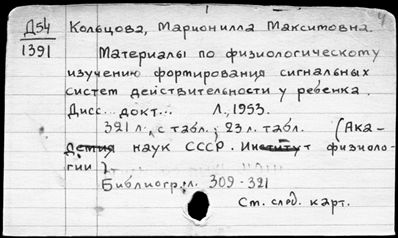 Д54
1391
Кольцова, Марионилла Максимовна.
Материалы по физиологическому
изучению формирования сигнальных
систем действительности у ребенка.
Дисс... докт... Л., 1953.
321 л. с табл.; 23 л. табл. (Ака-
демия наук СССР. Институт физиоло-
гии)
Библиогр: л. 309-321
См. след. карт.